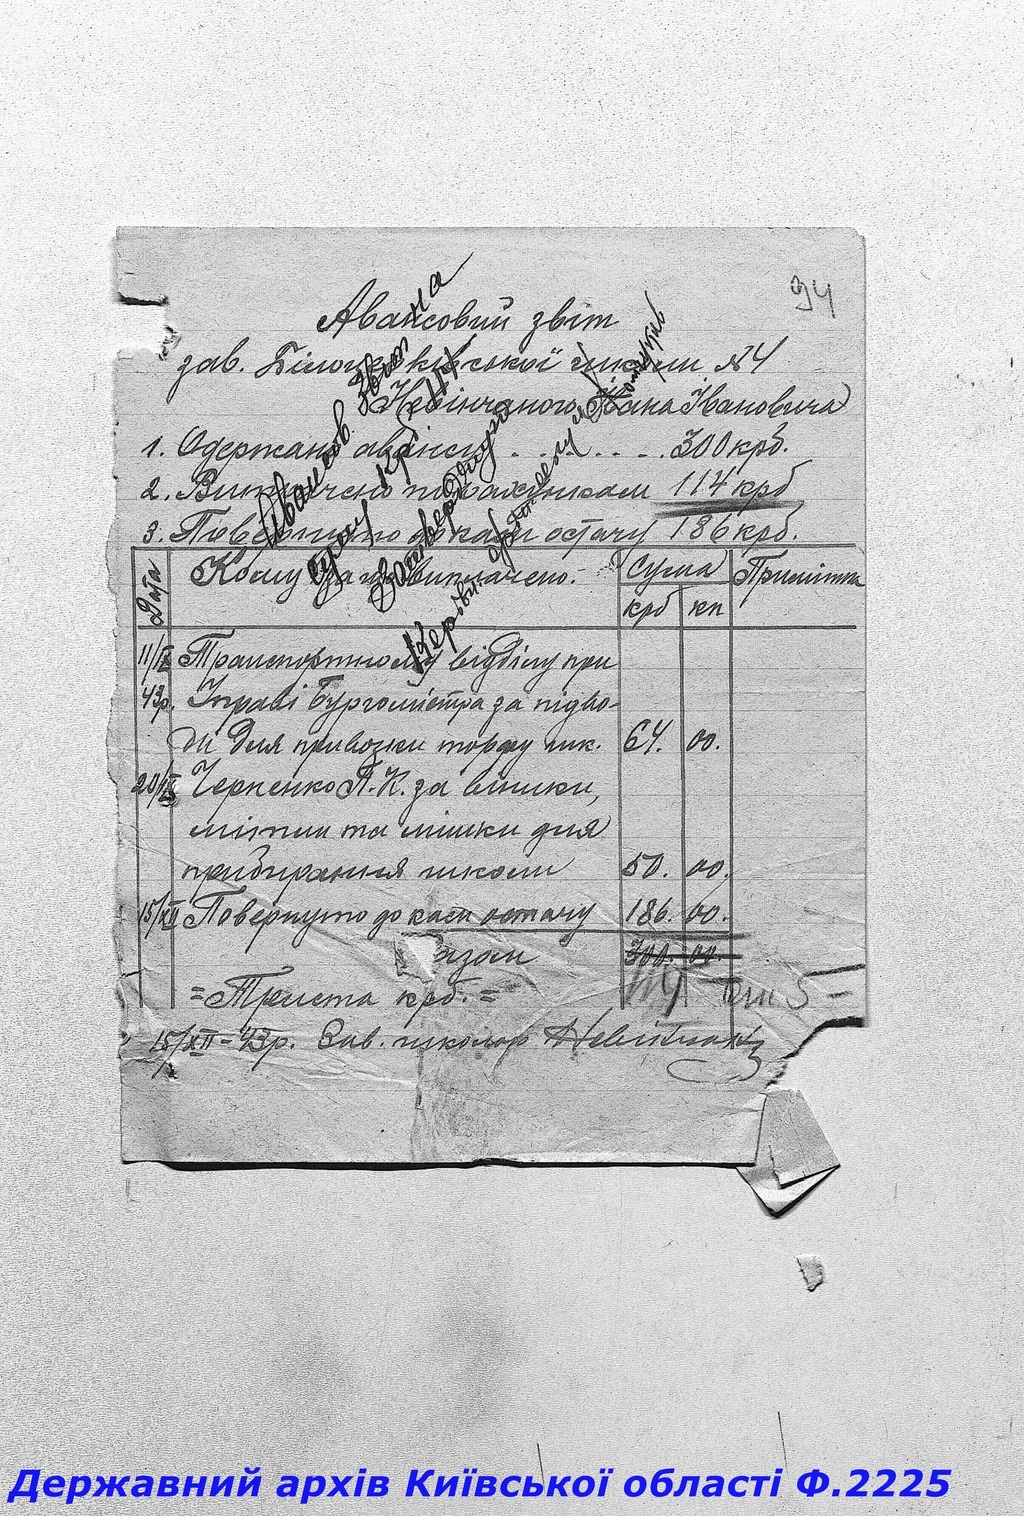 94
Авансовий звіт
зав. Білоцерківської школи №4
Невінчаного Івана Івановича
1. Одержано авансу . . . . . . 300 крб.
2. Виплачено по рахункам 114 крб
3. Повернуто до каси остачу 186 крб.
Авансов. Звіт на
суму крб 114
Затверджую
Дата
Кому за що виплачено.
Сума
Примітка
крб
кп
11/IX Транспортному відділу при
43р. Управі Бургомістра за підво-
ди для привозки торфу шк. 64. 00.
20/IX Черненко П. К. за віники,
мітли та мішки для
прибирання школи 50. 00.
15/XII Повернуто до каси остачу 186. 00.
Разом 300. 00.
114
=Триста крб.=
15/XII-43р. Зав. школою Невінчаний
Державний архів Київської області Ф.2225